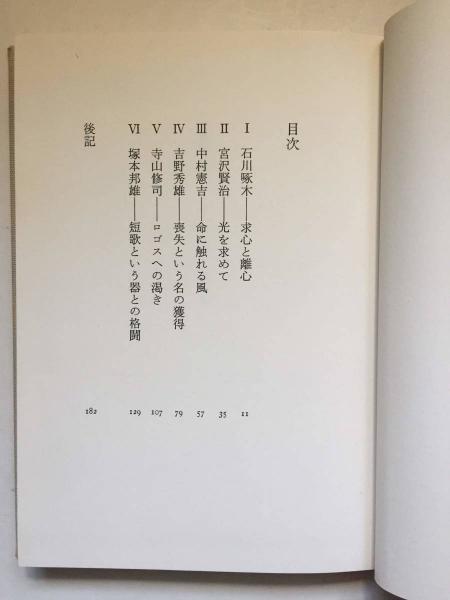 目次
Ⅰ 石川啄木――求心と離心 11
Ⅱ 宮沢賢治――光を求めて 35
Ⅲ 中村憲吉――命に触れる風 57
Ⅳ 吉野秀雄――喪失という名の獲得 79
Ⅴ 寺山修司――ロゴスへの渇き 107
Ⅵ 塚本邦雄――短歌という器との格闘 129
後記 182